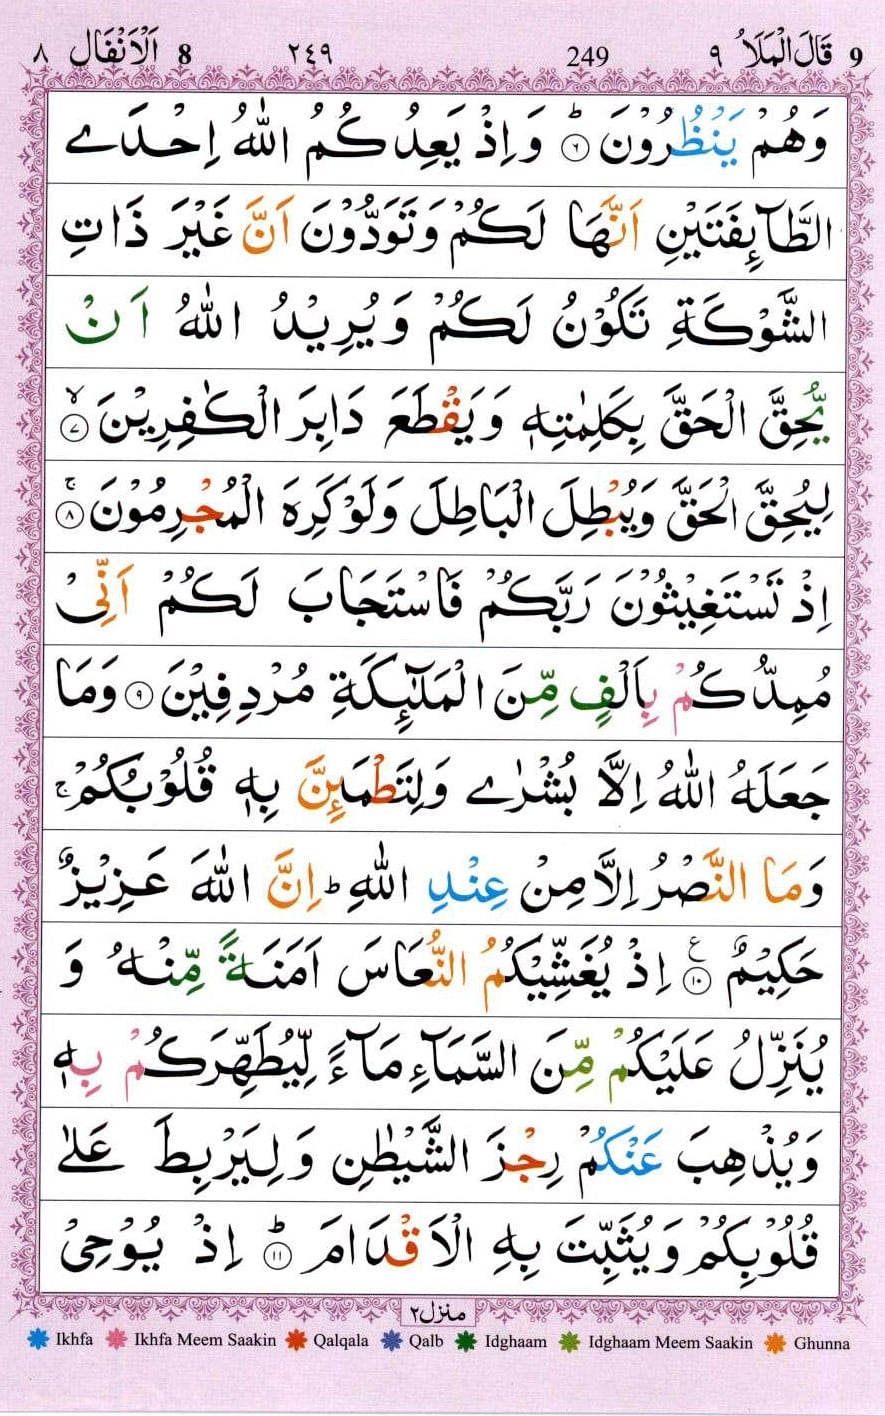 9 قَالَ الْمَلَاُ ٩ 249 ٢٤٩ 8 اَلْاَنْفَال ٨
وَهُمْ يَنْظُرُوْنَ ؕ۝٦ وَ اِذْ يَعِدُكُمُ اللّٰهُ اِحْدَے
الطَّآىِٕفَتَيْنِ اَنَّهَا لَكُمْ وَتَوَدُّوْنَ اَنَّ غَيْرَ ذَاتِ
الشَّوْكَةِ تَكُوْنُ لَكُمْ وَ يُرِيْدُ اللّٰهُ اَنْ
يُّحِقَّ الْحَقَّ بِكَلِمٰتِهٖ وَ يَقْطَعَ دَابِرَ الْكٰفِرِيْنَ ۙ۝٧
لِيُحِقَّ الْحَقَّ وَيُبْطِلَ الْبَاطِلَ وَلَوْ كَرِهَ الْمُجْرِمُوْنَ ۚ۝٨
اِذْ تَسْتَغِيْثُوْنَ رَبَّكُمْ فَاسْتَجَابَ لَكُمْ اَنِّىْ
مُمِدُّكُمْ بِاَلْفٍ مِّنَ الْمَلٰٓىِٕكَةِ مُرْدِفِيْنَ ۝٩ وَمَا
جَعَلَهُ اللّٰهُ اِلَّا بُشْرٰے وَلِتَطْمَىِٕنَّ بِهٖ قُلُوْبُكُمْ ۚ
وَمَا النَّصْرُ اِلَّا مِنْ عِنْدِ اللّٰهِ ؕ اِنَّ اللّٰهَ عَزِيْزٌ
حَكِيْمٌ ۝١٠ ع اِذْ يُغَشِّيْكُمُ النُّعَاسَ اَمَنَةً مِّنْهُ وَ
يُنَزِّلُ عَلَيْكُمْ مِّنَ السَّمَآءِ مَآءً لِّيُطَهِّرَكُمْ بِهٖ
وَيُذْهِبَ عَنْكُمْ رِجْزَ الشَّيْطٰنِ وَ لِيَرْبِطَ عَلٰے
قُلُوْبِكُمْ وَ يُثَبِّتَ بِهِ الْاَقْدَامَ ؕ۝١١ اِذْ يُوْحِىْ
منزل ٢
Ikhfa Ikhfa Meem Saakin Qalqala Qalb Idghaam Idghaam Meem Saakin Ghunna